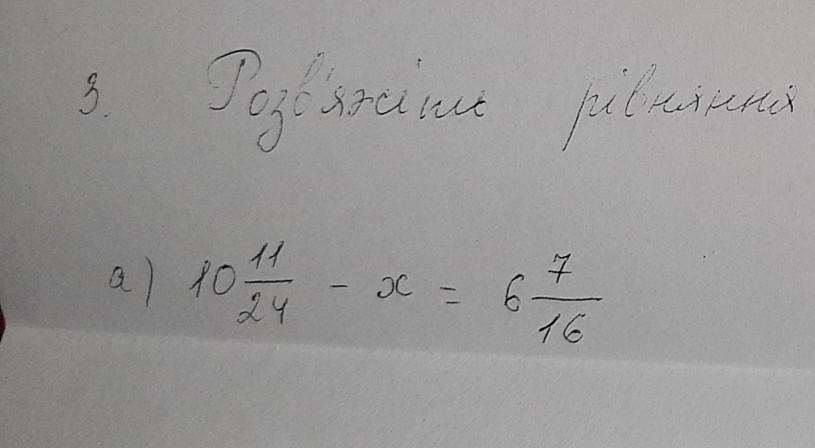 3. Розв'яжіть рівняння
а) 10 11/24 - x = 6 7/16